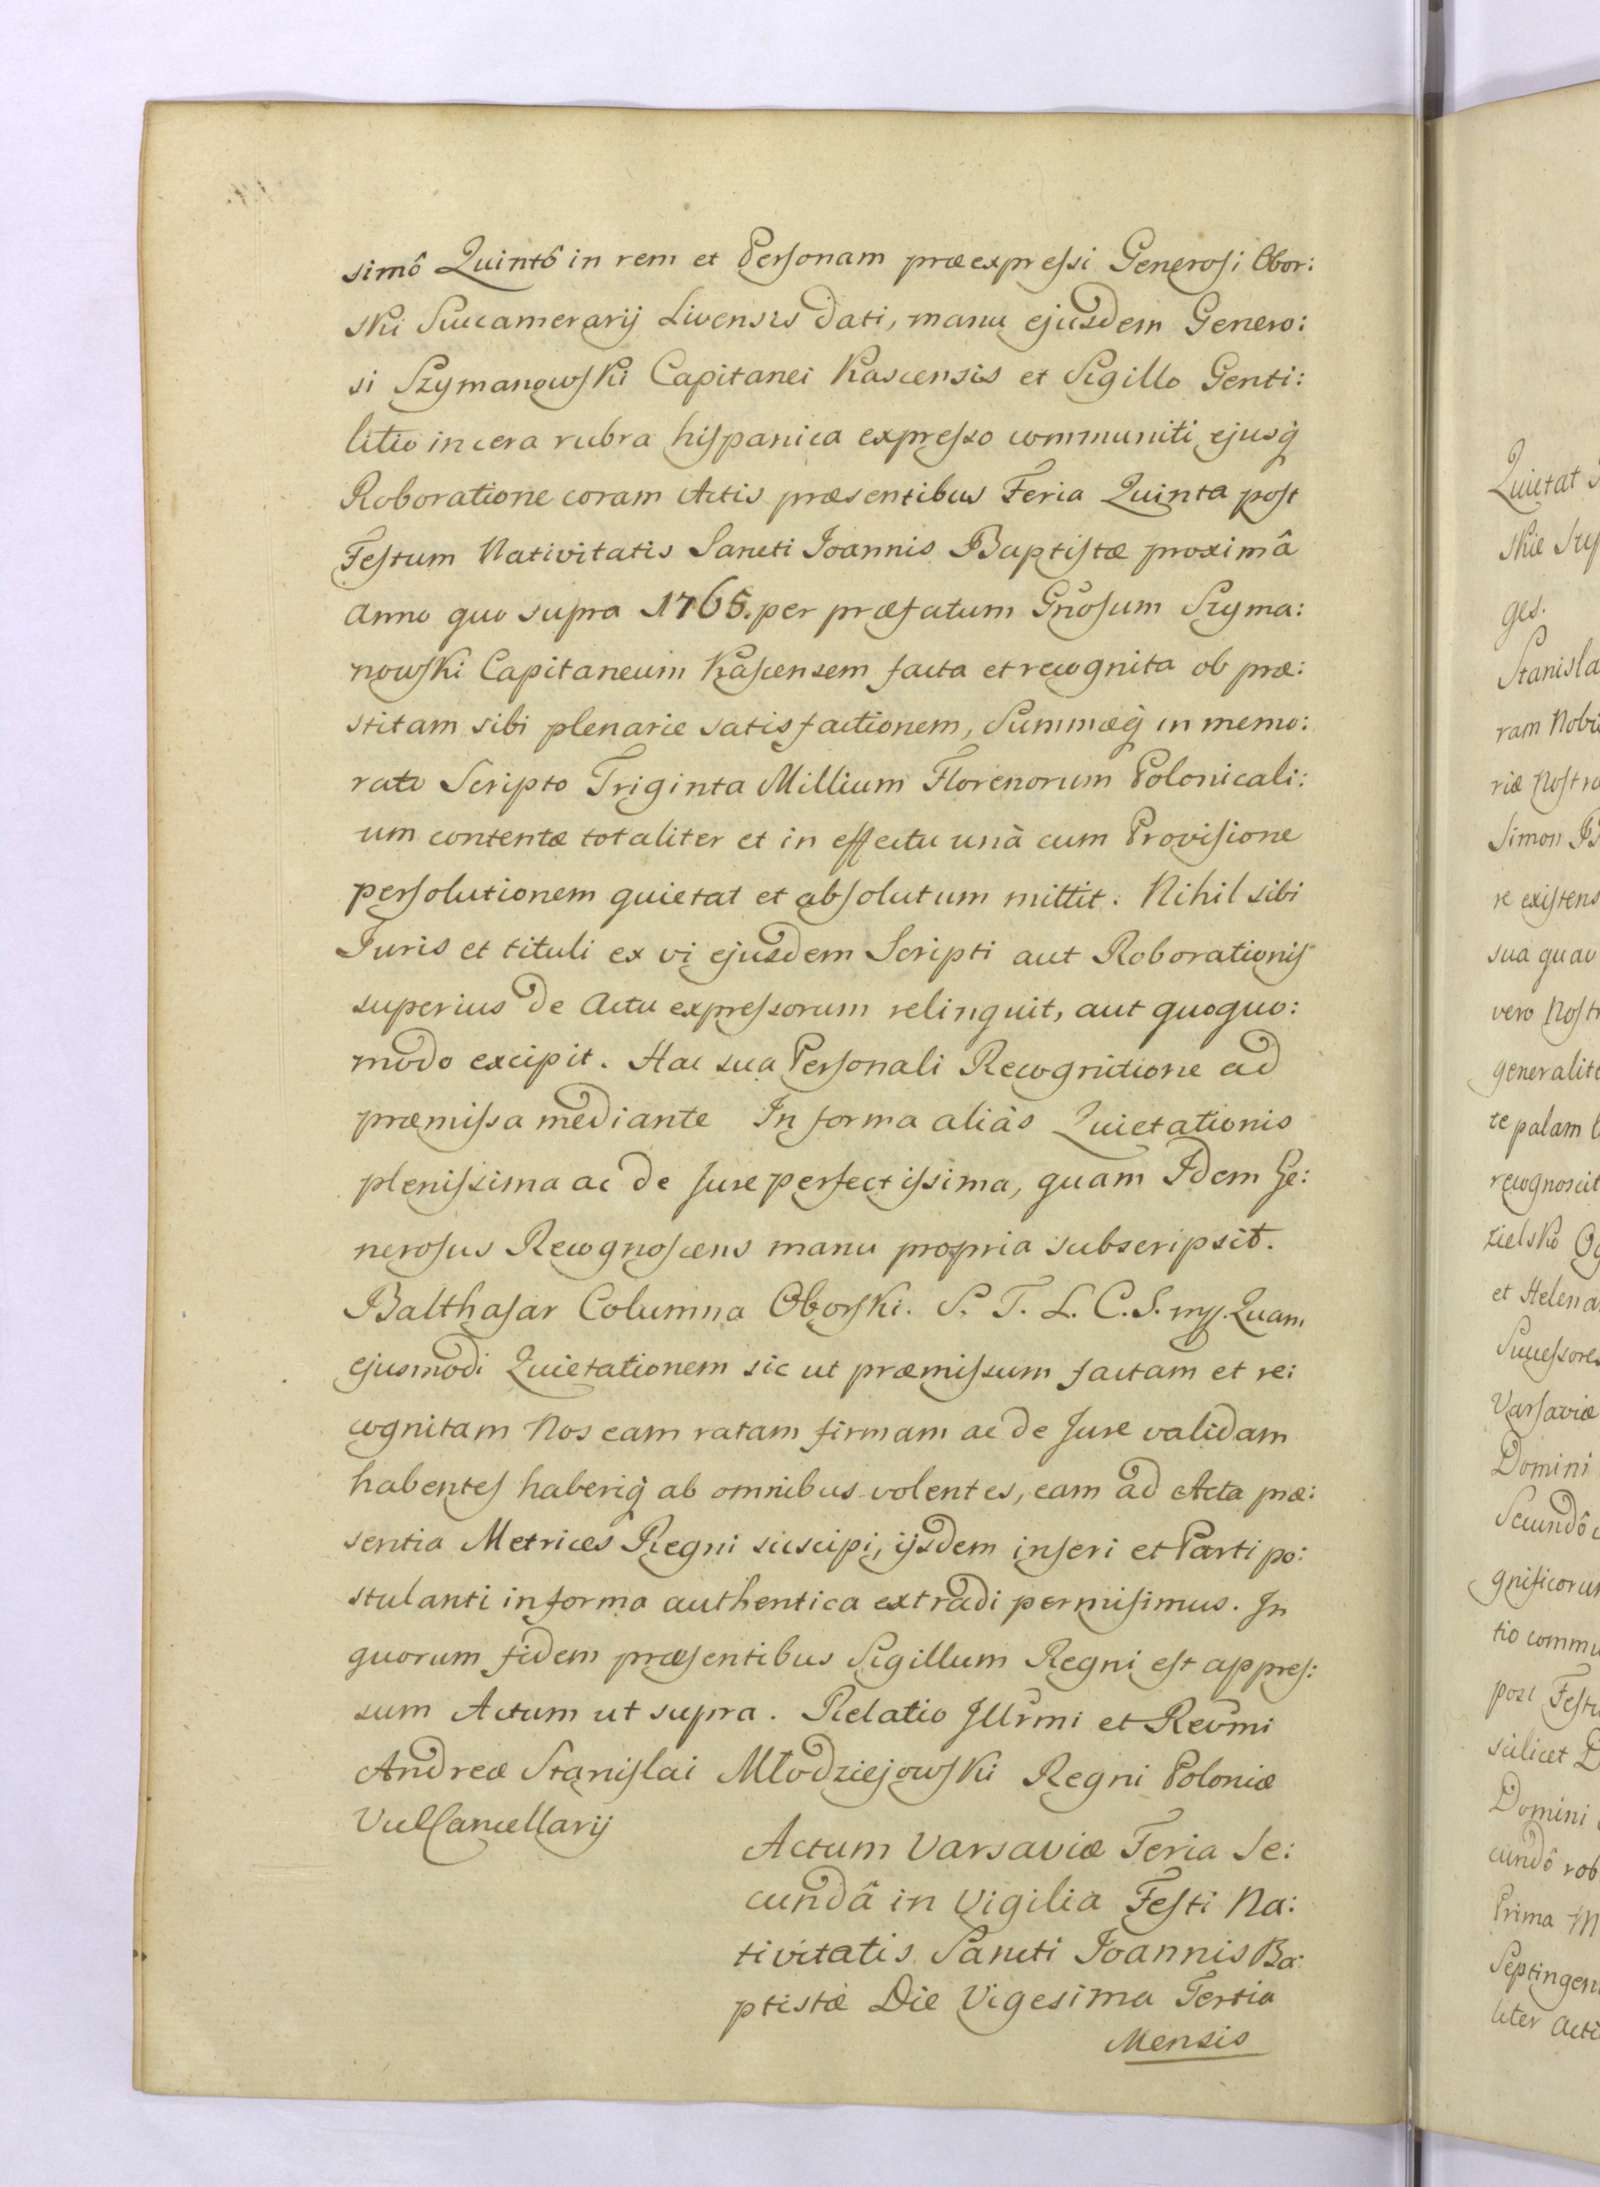 simô Quintô in rem et Personam præexpressi Generosi Obor:
ski Succamerarij Livensis dati, manu ejusdem Genero:
si Szymanowski Capitanei Kascensis et Sigillo Genti:
litio in cera rubra hispanica expresso communiti ejusq̀
Roboratione coram Actis præsentibus Feria Quinta post
Festum Nativitatis Sancti Joannis Baptistæ proximâ
Anno quo supra 1765. per præfatum Gñosum Szyma:
nowski Capitaneum Kascensem facta et recognita ob præ:
stitam sibi plenarie satisfactionem, Summæq̀ in memo:
rato Scripto Triginta Millium Florenorum Polonicali:
um contentæ totaliter et in effectu unà cum Provisione
persolutionem quietat et absolutum mittit. Nihil sibi
Juris et tituli ex vi ejusdem Scripti aut Roborationis
superius de Actu expressorum relinquit, aut quoquo:
modo excipit. Hac sua Personali Recognitione ad
præmissa mediante In forma aliàs Quietationis
plenissima ac de Jure perfectissima, quam Idem Ge:
nerosus Recognoscens manu propria subscripsit.
Balthasar Columna Oborski. P. T. L. C. S. mp. Quam
ejusmodi Quietationem sic ut præmissum factam et re:
cognitam Nos eam ratam firmam ac de Jure validam
habentes haberiq̀ ab omnibus volentes, eam ad Acta præ:
sentia Metrices Regni suscipi, ijsdem inseri et Parti po:
stulanti in forma authentica extradi permisimus. In
quorum fidem præsentibus Sigillum Regni est appres:
sum Actum ut supra. Relatio Illr̃mi et Reṽmi
Andreæ Stanislai Młodziejowski Regni Poloniæ
ViceCancellarij
Actum Varsaviæ Feria Se:
cundâ in Vigilia Festi Na:
tivitatis Sancti Joannis Ba:
ptistæ Die Vigesima Tertia
Mensis
Quietat
skie
ges.
Stanisla
ram Nobi
riæ Nostra
Simon
re existens
sua quav
vero Nostr
generalite
te palam
recognoscit
zielsko
et Helena
Successores
Varsaviæ
Domini
Secundô
gnificorum
tio commu
post Festu
scilicet
Domini
cundô rob
Prima
Septingen
liter Acti